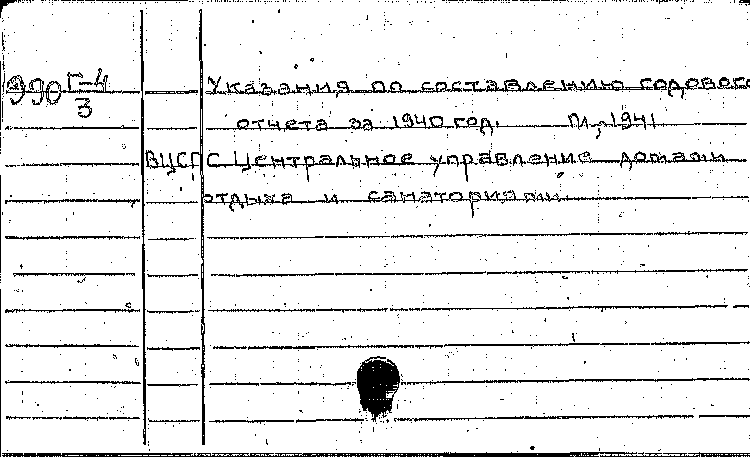 990 Г-4/3 Указания по составлению годового
отчета за 1940 год. М., 1941
ВЦСПС Центральное управление домами
отдыха и санаториями.